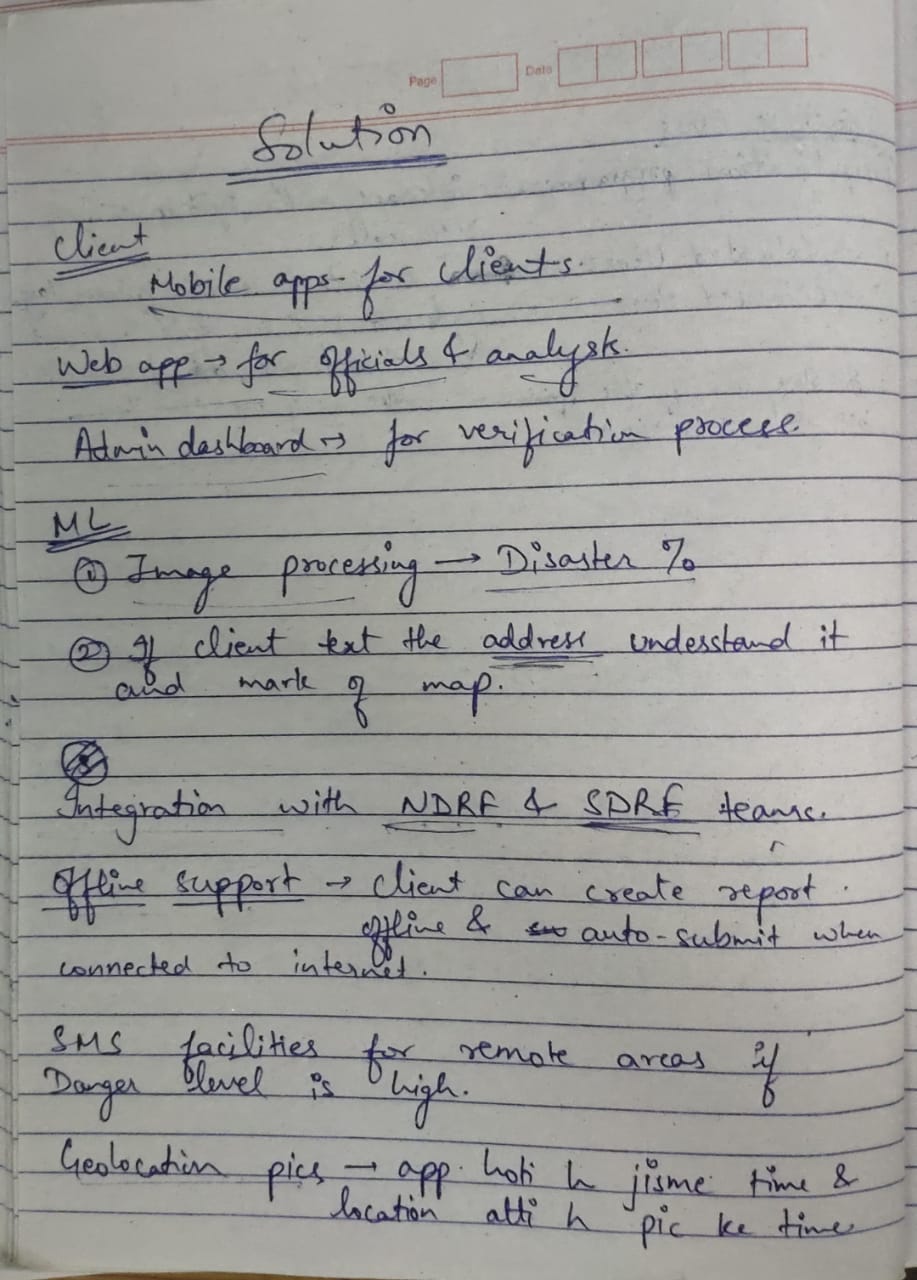 Page Date
Solution
Client
Mobile apps for clients.
Web app → for officials & analysts.
Admin dashboard → for verification process.
ML
① Image processing → Disaster %
② If client text the address understand it
and mark of map.
Integration with NDRF & SDRF teams.
Offline support → client can create report
offline & auto-submit when
connected to internet.
SMS facilities for remote areas if
Danger level is high.
Geolocation pics → app hoti h jisme time &
location atti h pic ke time